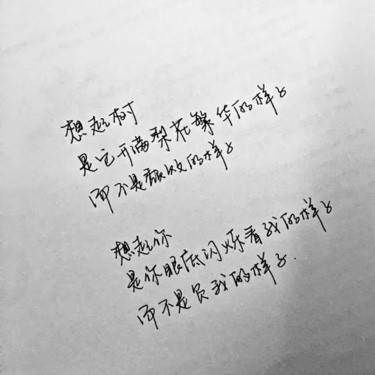 想起树
是它开满梨花繁华的样子
而不是颓败的样子
想起你
是你眼底闪烁着我的样子
而不是负我的样子.